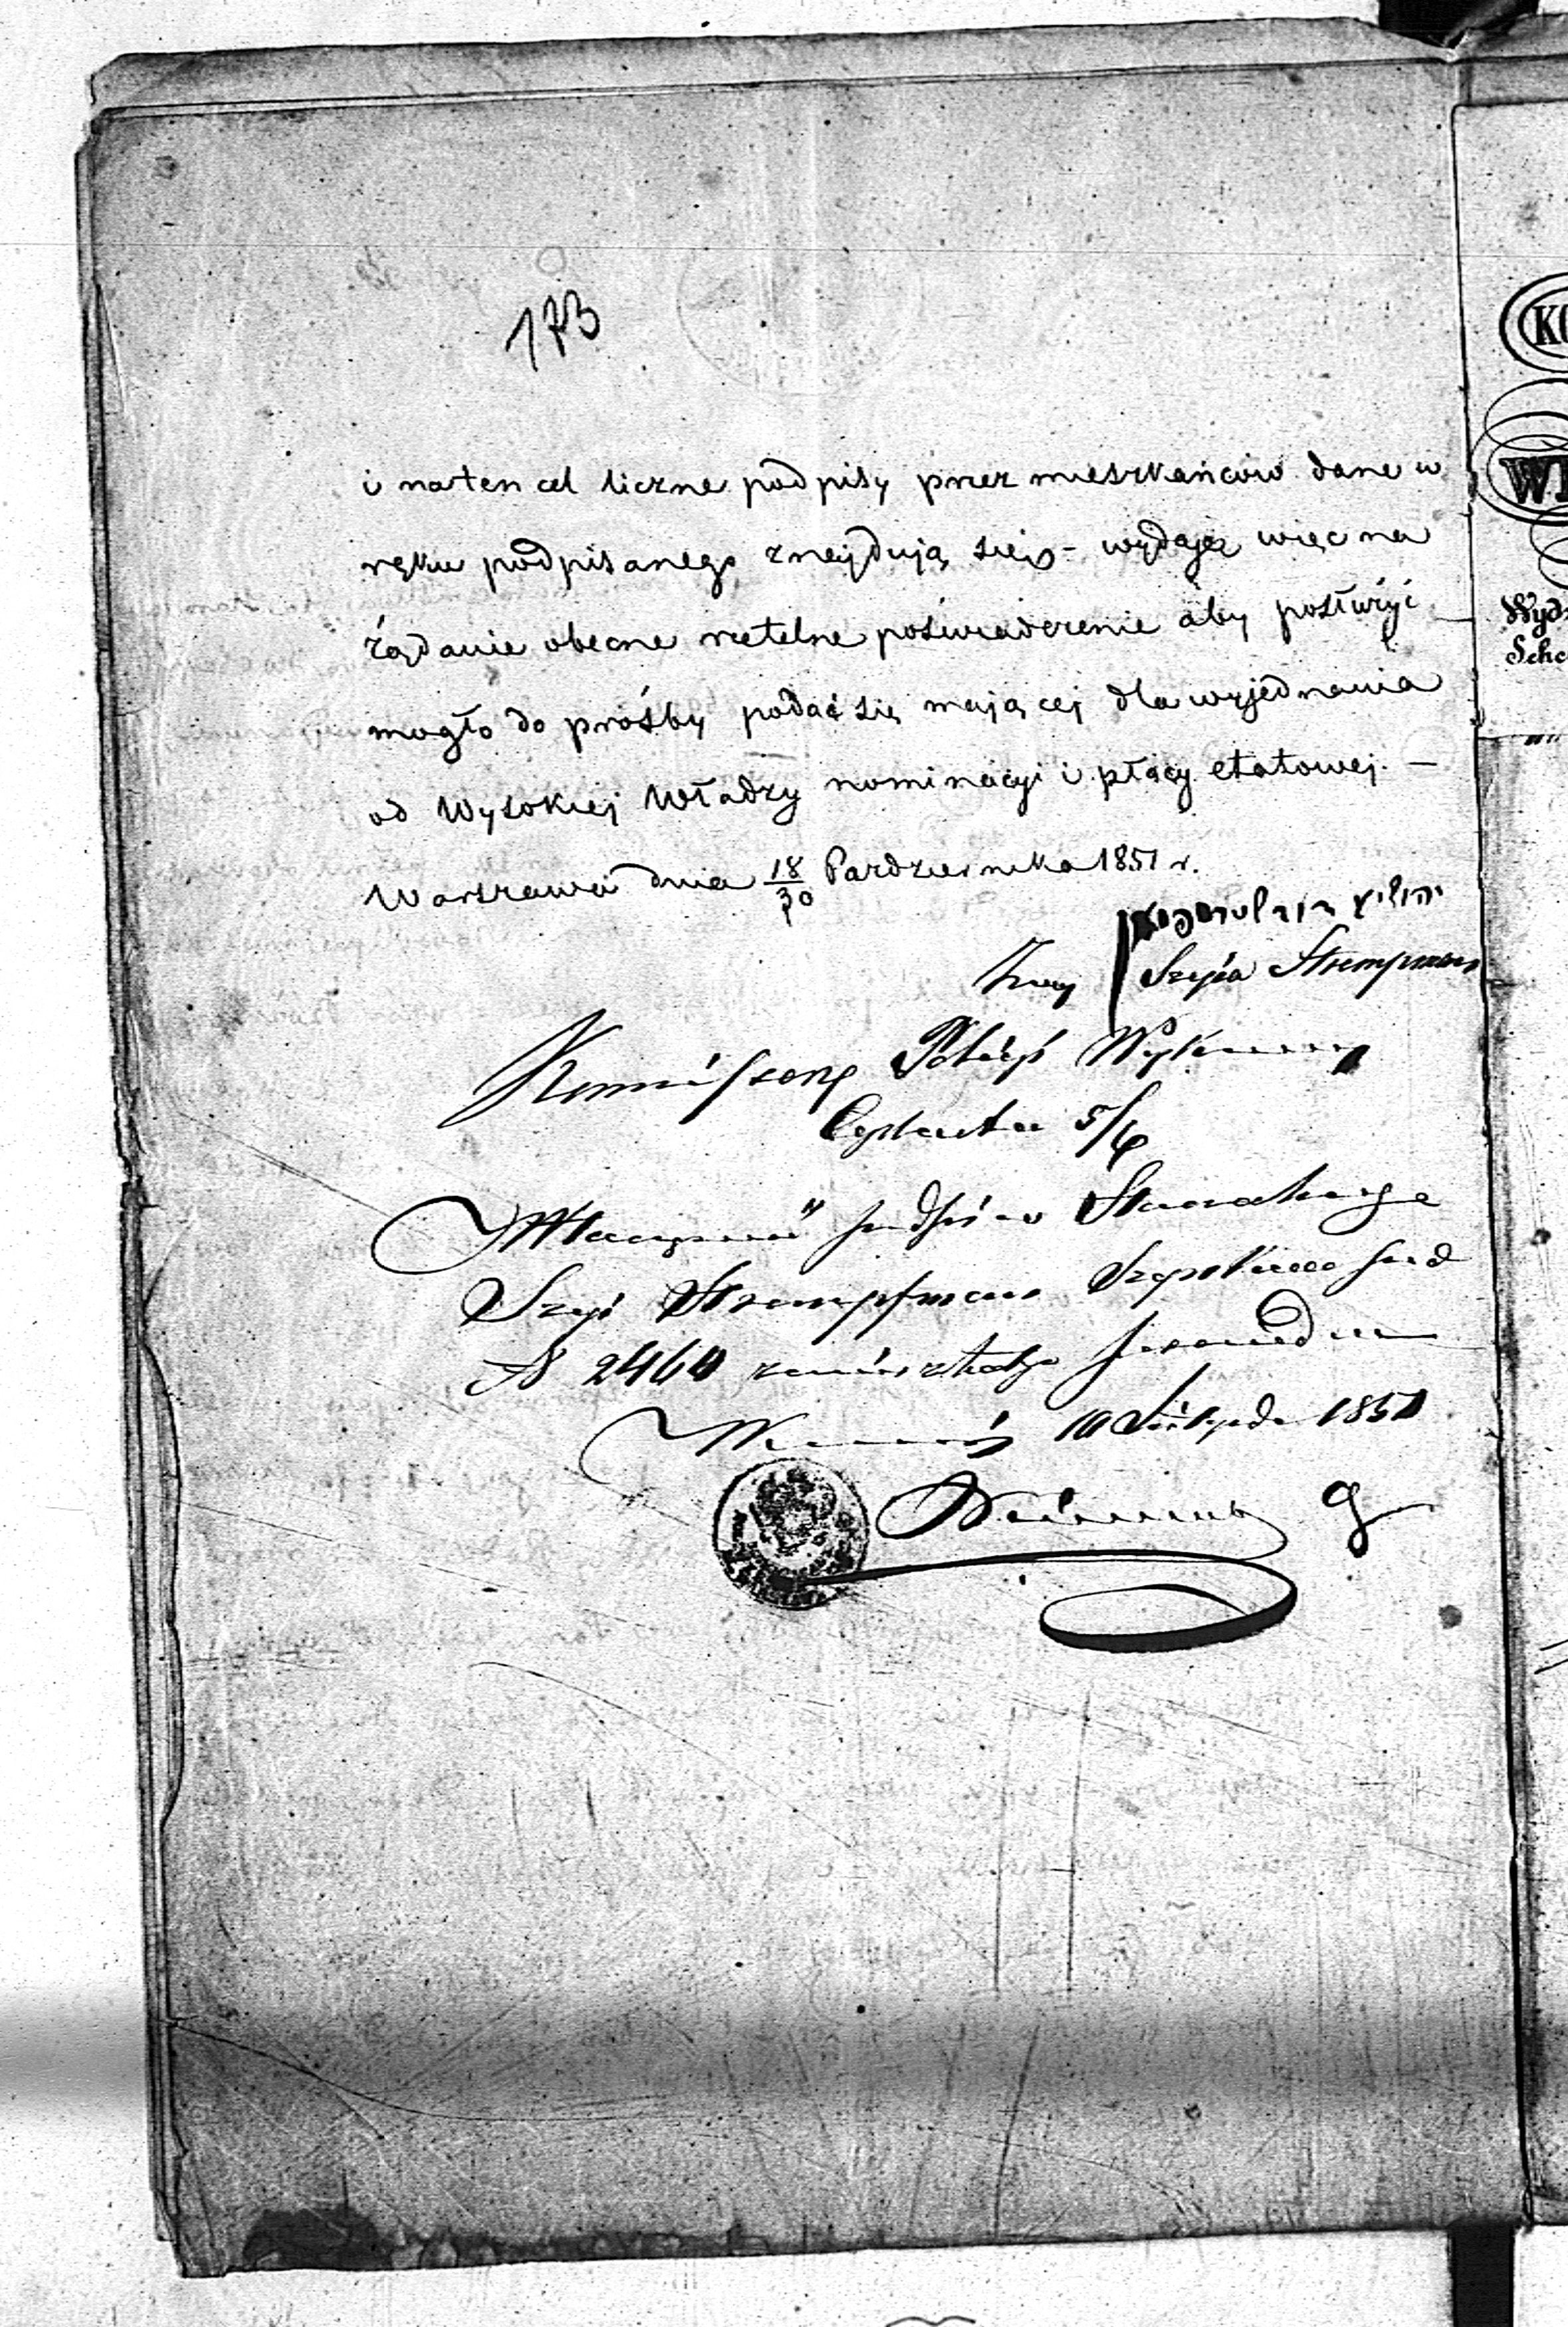 173
i na ten cel liczne podpisy przez mieszkańców dane w
ręku podpisanego znajdują się - wydaję więc na
żądanie obecne rzetelne poświadczenie aby posłużyć
mogło do prośby podać się mającej dla wyjednania
od Wysokiej Władzy nominacyi i płacy etatowej. —
Warszawa dnia 18/30 Pazdziernika 1851 r.
Szyja Sztempfman
Kommissarz Policyi Wykonawczy
Cyrkułu 5/6
podpisu Starozakonnego
Szyi Sztempfman pod
N 2460 zamieszkałego
10 Listopada 1851
KO
WI
Wyd
Sche